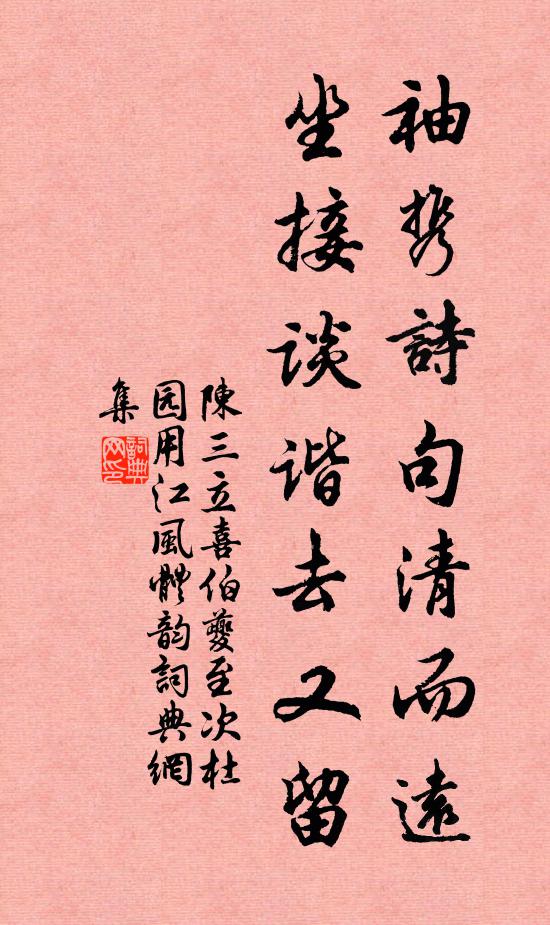 袖携詩句清而遠
坐接谈谐去又留
陳三立喜伯夔至次杜
园用江風體韵詞典網
集
詞典
网印